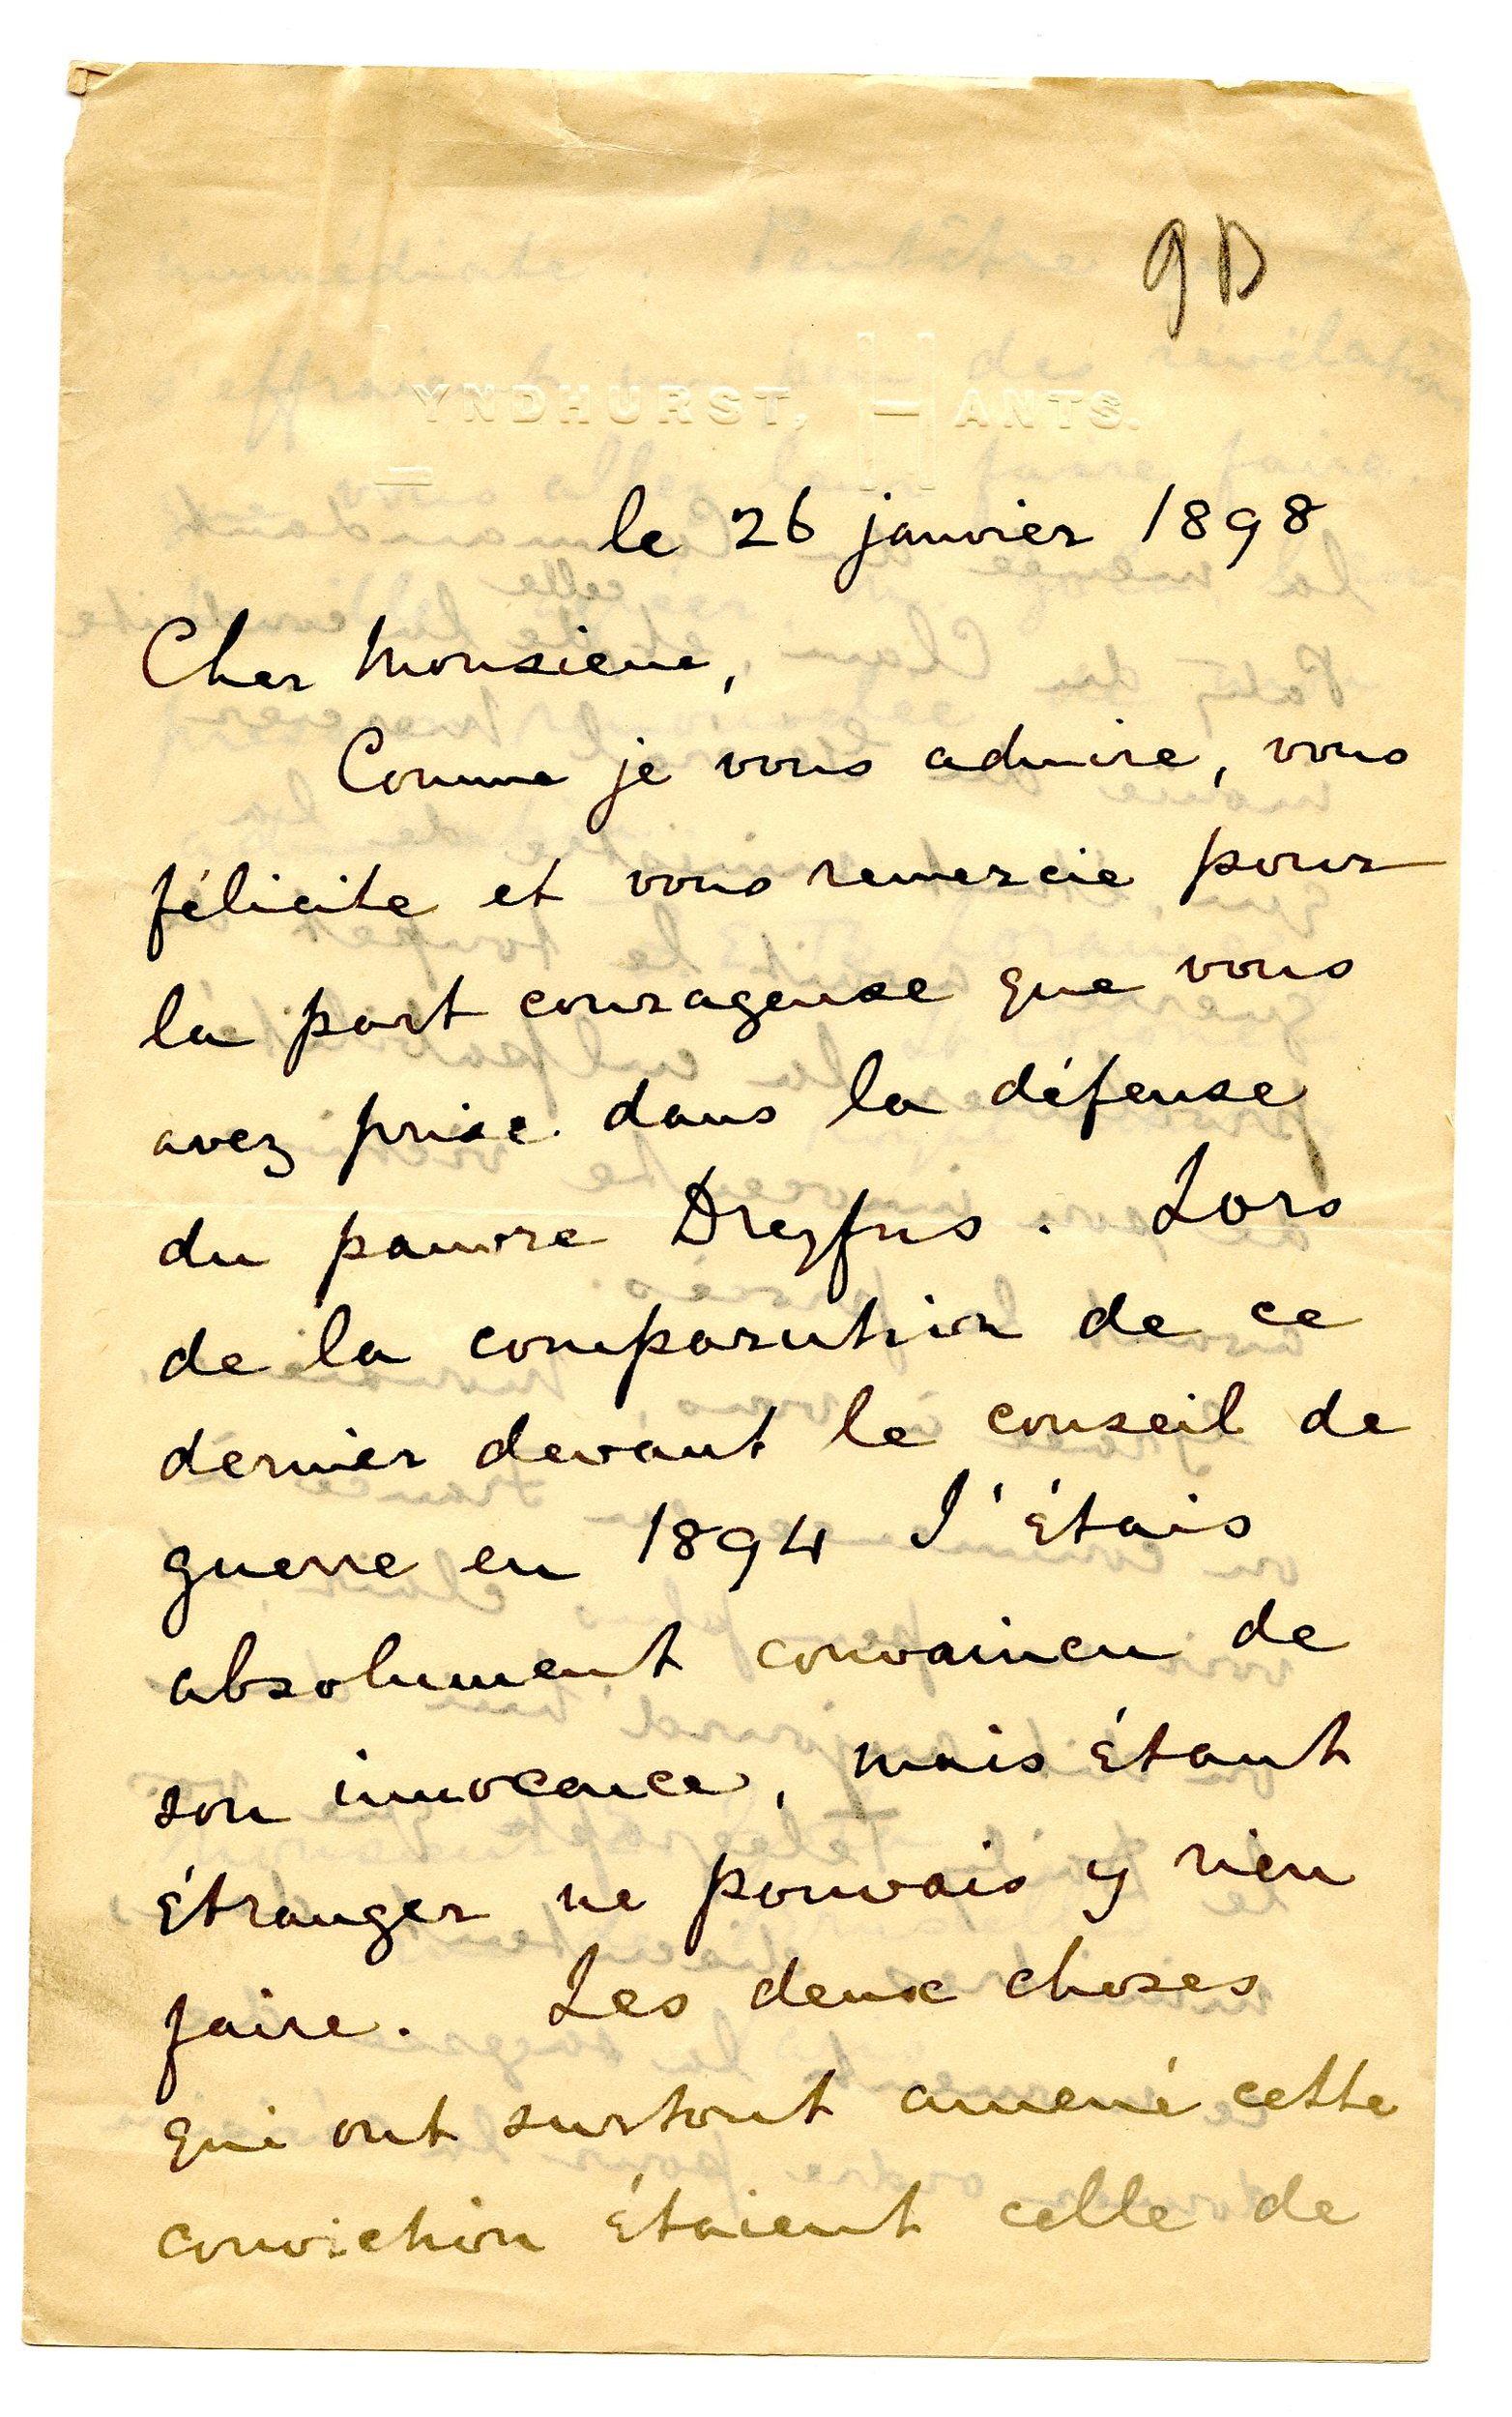 9D
LYNDHURST, HANTS.
le 26 janvier 1898
Cher Monsieur,
Comme je vous admire, vous
félicite et vous remercie pour
la part courageuse que vous
avez prise dans la défense
du pauvre Dreyfus. Lors
de la comparution de ce
dernier devant le conseil de
guerre en 1894 J'étais
absolument convaincu de
son innocence, mais étant
étranger ne pouvais y rien
faire. Les deux choses
qui ont surtout amené cette
conviction étaient celle de